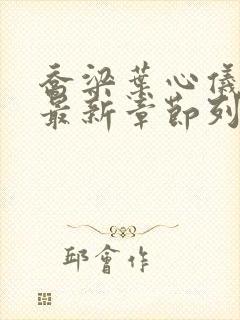 喬梁葉心儀
最新章節列
邱會作